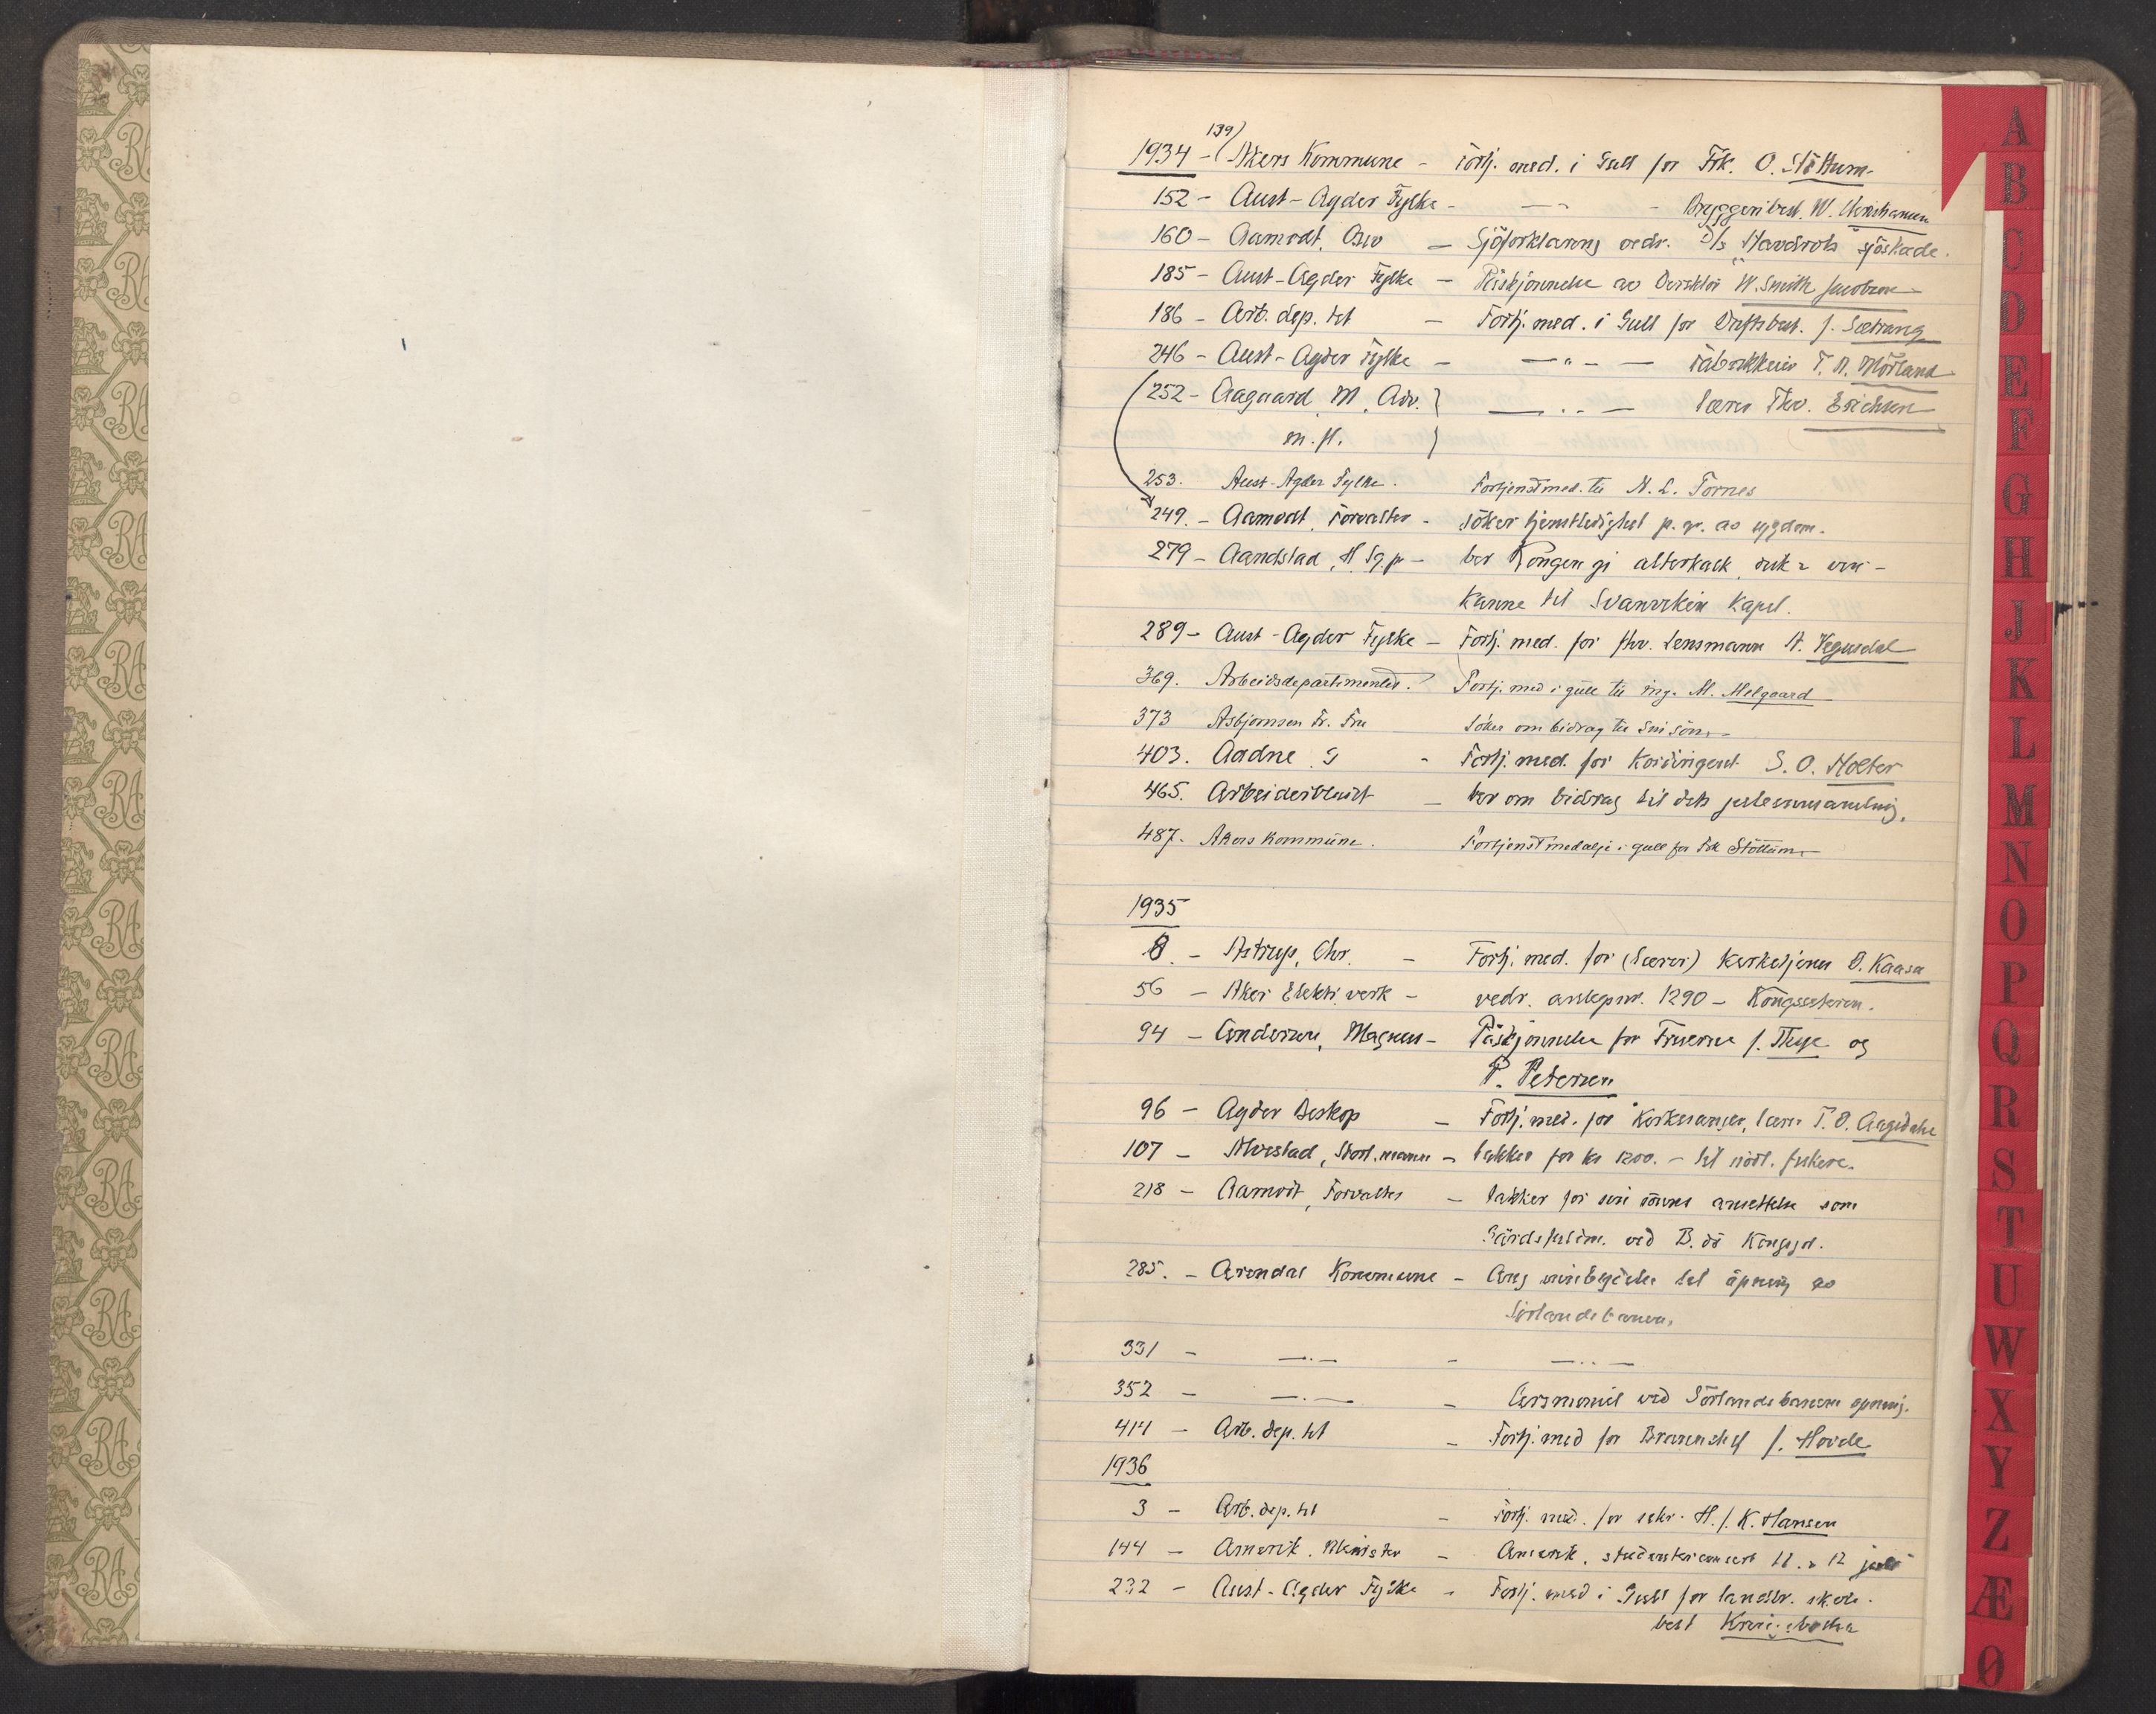 139)
1934 - ( Akers Kommune - Fortj. med. i Gull for Frk. O. Støttum
152 - Aust-Agder Fylke - —"— - Bryggeribest. W. Christiansen
160 - Aamodt, - Sjöforklaring vedr. D/s "Havdrots" sjöskade.
185 - Aust-Agder Fylke - Påskjønnelse av Direktör W. Smith Jacobsen
186 - Arb. dep. tet - Fortj. med. i Gull for Driftsbest. J. Sætrang
246 - Aust-Agder Fylke - —"— - Fabrikkeier T. A. Mörland
252 - Aagaard, M. Adv. } —"— Lærer Thv. Erichsen
m. fl. }
253. Aust-Agder Fylke. Fortjenstmed. til N. L. Tornes
249. - Aamodt, Forvalter - Söker tjenstledighet p. gr. av sygdom.
279 - Aandstad, H. Sg.pr - ber Kongen gi alterkalk, disk & vin-
kanne til Svanvik Kapel.
289 - Aust-Agder Fylke - Fortj. med. for fhv. Lensmann A. Vegusdal
369. Arbeidsdepartementet. Fortj. med i gull til ing. M. Melgaard
373 Asbjornsen Fr. Fru Söker om bidrag til sin sön.
403. Aadne G - Fortj. med. for Kordirigent S. O. Holter
465. Arbeiderbladet - ber om bidrag til dets juleinnsamling.
487. Akers Kommune. Fortjenstmedalje i gull for Frk Støttum
1935
8. - Astrup, Chr. - Fortj. med. for (Lærer) Kirketjener O. Kaasa
56 - Aker Elektr. verk - vedr. anlegnr. 1290 - Kongsseteren.
94 - Andersen, Magnus - Påskjønnelse for Fruerne J. Thye og
P. Petersen
96 - Agder Biskop - Fortj. med. for Kirkesanger, lærer T. O. Aagedahl
107 - Alvestad, Stort.mann - takker for kr 1200. - til nödl. fiskere.
218 - Aamodt, Forvalter - takker for sin sönns ansettelse som
Gårdsfullm. ved B. dö Kongsgd.
285. - Arendal Kommune - Ang innbydelse til åpning av
Sörlandsbanen.
331 - —"— - —"—
352 - —"— - Cermoniel ved Sörlandsbanens åpning.
414 - Arb. dep. tet - Fortj. med for Brannchef J. Hovde
1936
3 - Arb. dep. tet - Fortj. med. for sekr. H. J. K. Hansen
144 - Amerik. Minister - Amerik. studenterconsert 11. & 12 juli
232 - Aust-Agder Fylke - Fortj. med i Gull for landbr. skole-
best
A
B
C
D
E
F
G
H
J
K
L
M
N
O
P
Q
R
S
T
U
W
X
Y
Z
Æ
Ø